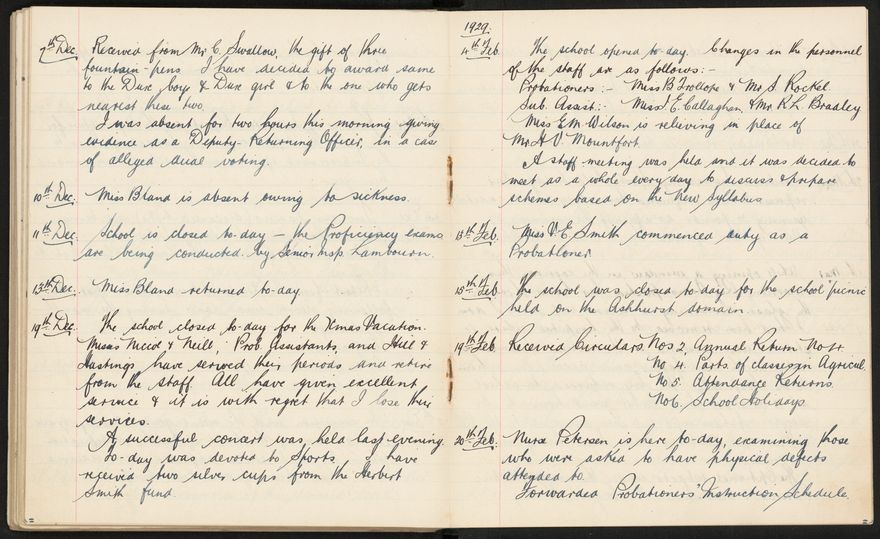 7th Dec. Received from Mr C. Swallow, the gift of three
fountain-pens. I have decided to award same
to the Dux boy & Dux girl & to the one who gets
nearest these two.
I was absent for two hours this morning giving
evidence as a Deputy-Returning Officer, in a case
of alleged dual voting.
10th Dec. Miss Bland is absent owing to sickness.
11th Dec. School is closed to-day – the Proficiency exams
are being conducted by Senior Insp. Lambourn.
13th Dec. Miss Bland returned to-day
19th Dec. The school closed to-day for the Xmas Vacation.
Misses & Neill, Prob. Assistants, and Hill &
Hastings have served their periods and retire
from the staff. All have given excellent
service & it is with regret that I lose their
services.
A successful concert was held last evening.
To-day was devoted to Sports. I have
received two silver cups from the Herbert
Smith fund.
1929.
The school opened to-day. Changes in the personnel
of the staff are as follows:-
Probationers:- Miss B Trollope & Mr S. Rockel.
Sub. Assist:- Miss J. E. Callaghan & Mr. R. L. Bradley
Miss E M. Wilson is relieving in place of
Mr H V. Mountfort.
A staff meeting was held and it was decided to
meet as a whole every day to discuss & prepare
schemes based on the New Syllabus
13th Feb. Miss V. E. Smith commenced duty as a
Probationer.
15th Feb. The school was closed to-day for the school picnic
held on the Ashhurst domain.
19th Feb. Received Circulars Nos 2, Annual Return No 4.
No 4. Parts of classes in Agricul.
No 5. Attendance Returns.
No 6. School Holidays.
20th Feb. Nurse Petersen is here to-day, examining those
who were asked to have physical defects
attended to.
Forwarded Probationers' Instruction Schedule.